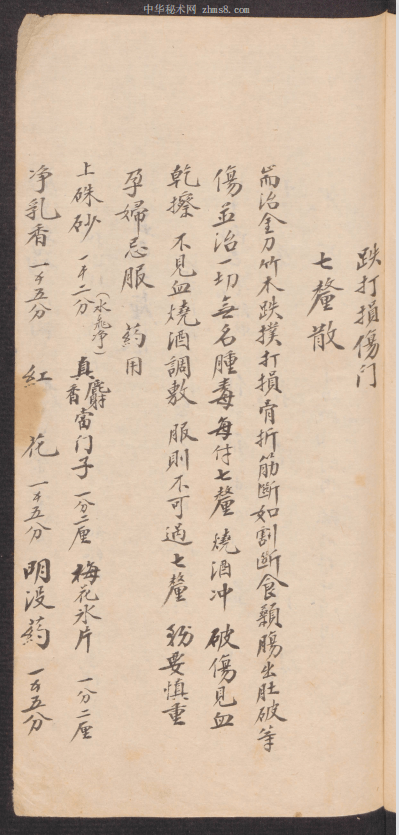 中华秘术网 zhms8.com
跌打損傷门
七釐散
耑治金刀竹木跌撲打損骨折筋斷如割斷食顙腸出肚破等
傷並治一切無名腫毒每付七釐 燒酒冲 破傷見血
乾擦 不見血燒酒調敷 服則不可過七釐 務要慎重
孕婦忌服 药用
上硃砂 一千二分（水飛净）真麝香當门子 一分二厘 梅花氷片 一分二厘
净乳香 一千五分 紅花 一千五分 明没葯 一千五分